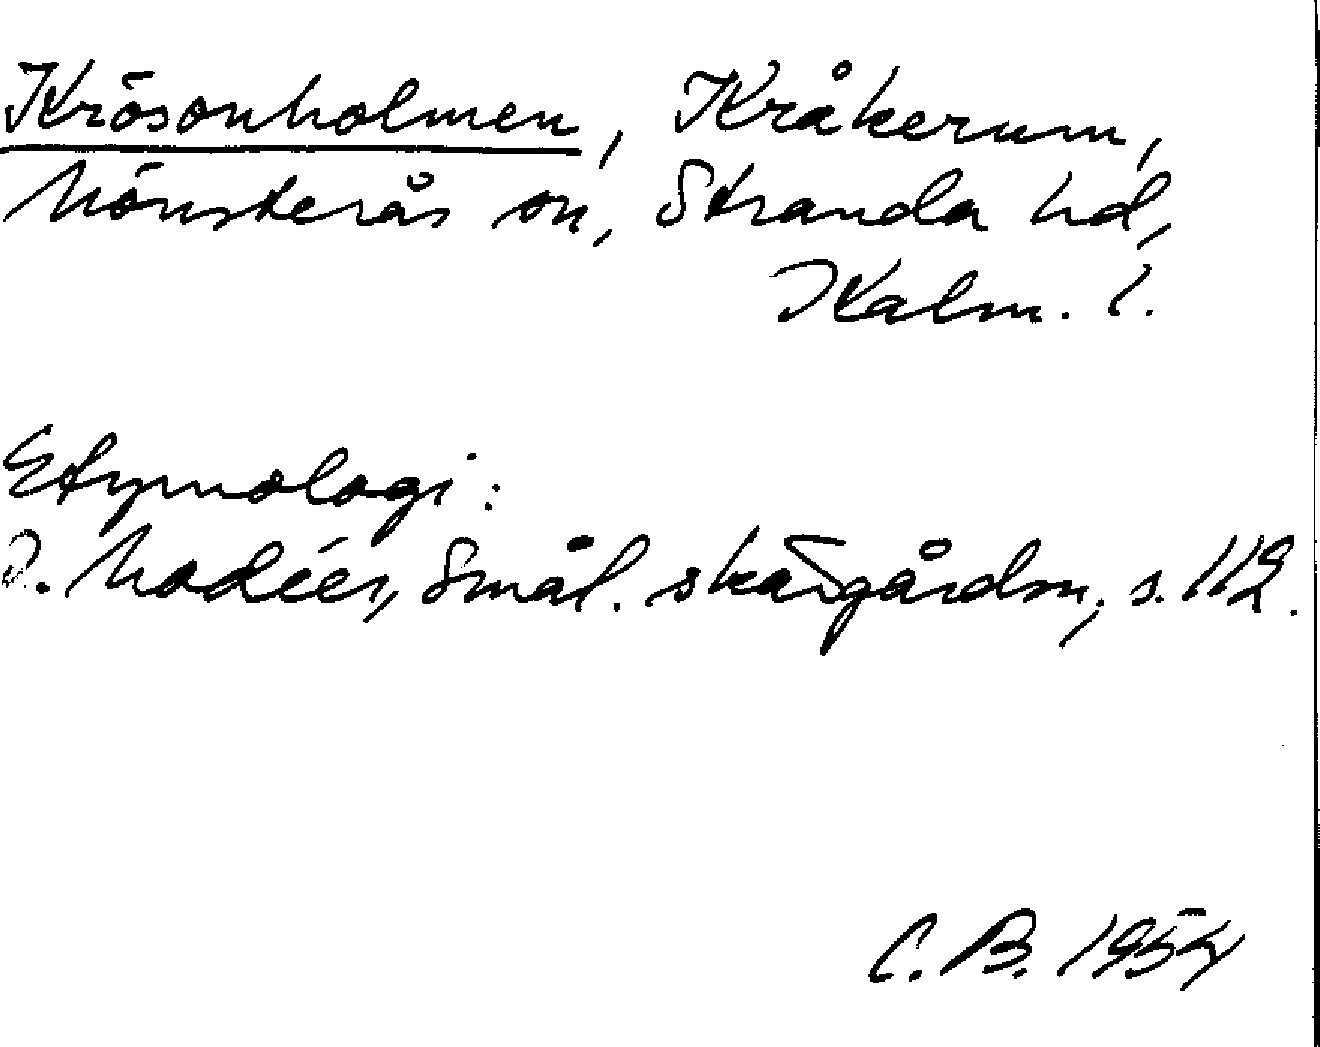 Krösonholmen, Kråkerum,
Mönsterås sn, Stranda hd,
Kalm. l.
Etymologi:
I. Modéer, Smål. skärgårdsn., s. 112.
C. B. 1954